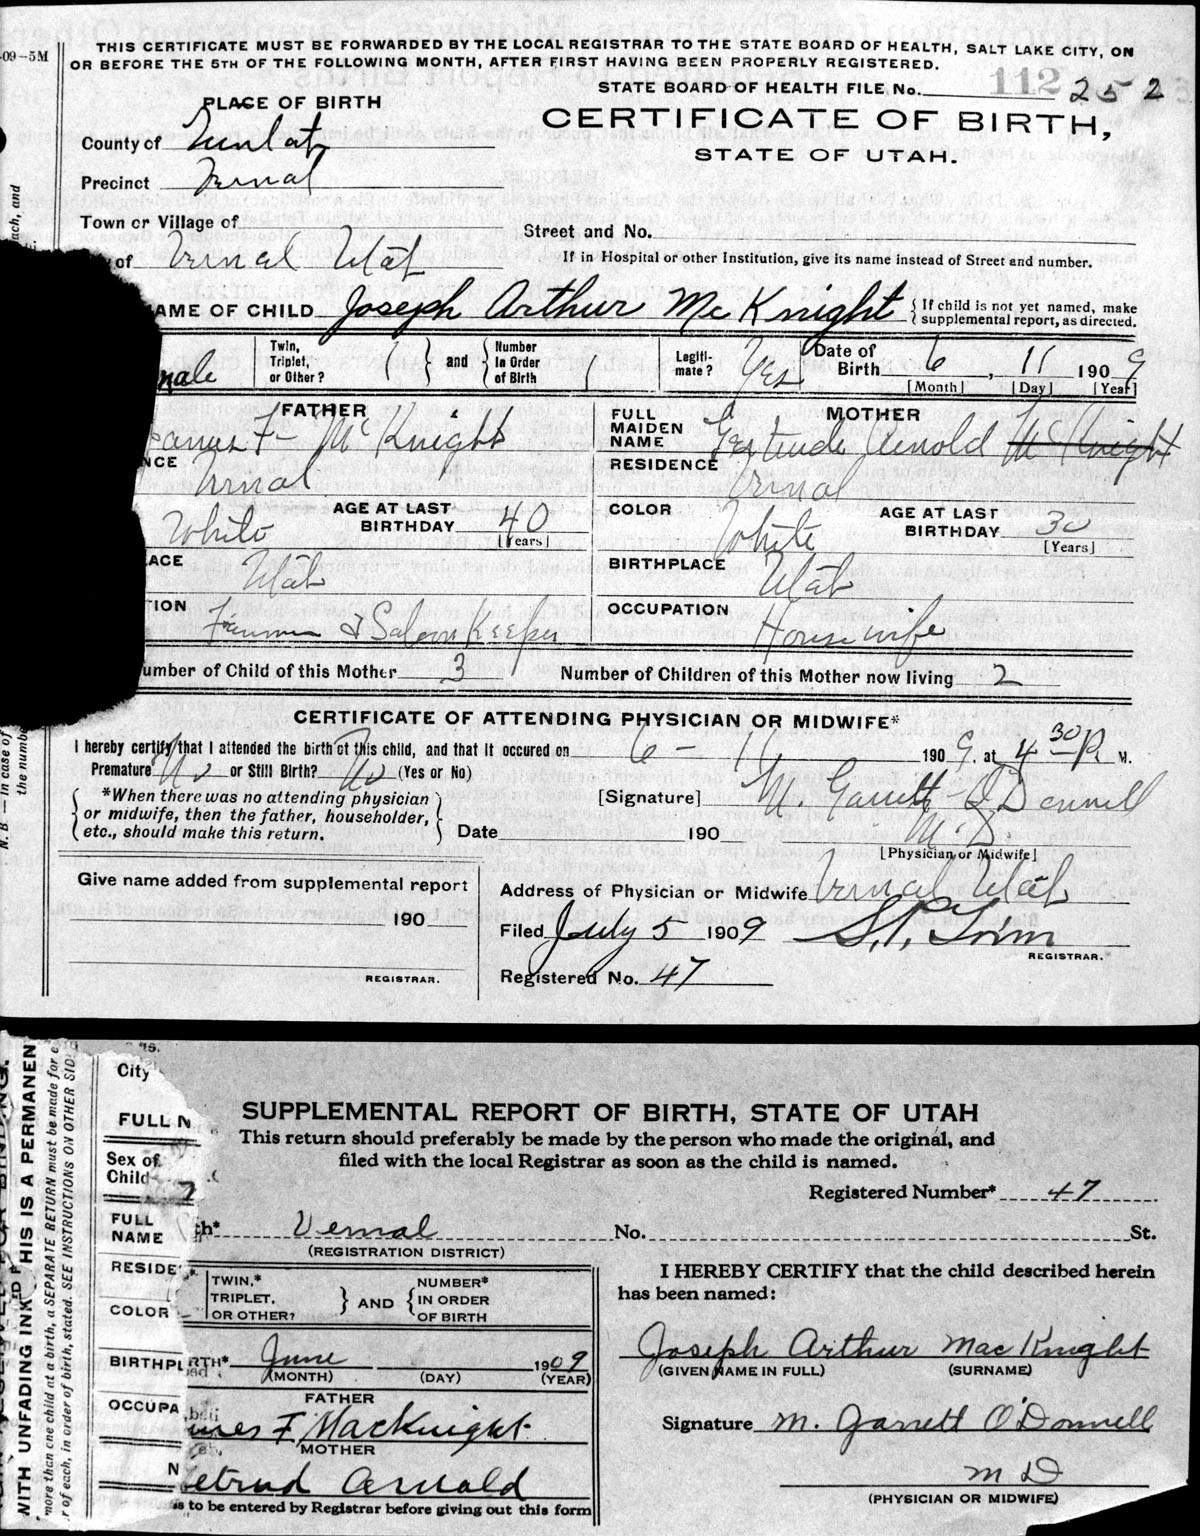 09-5M
THIS CERTIFICATE MUST BE FORWARDED BY THE LOCAL REGISTRAR TO THE STATE BOARD OF HEALTH, SALT LAKE CITY, ON
OR BEFORE THE 5TH OF THE FOLLOWING MONTH, AFTER FIRST HAVING BEEN PROPERLY REGISTERED.
STATE BOARD OF HEALTH FILE No. 112 252
PLACE OF BIRTH
CERTIFICATE OF BIRTH,
STATE OF UTAH.
County of
Precinct Vernal
Town or Village of
Street and No.
of Vernal Utah
If in Hospital or other Institution, give its name instead of Street and number.
AME OF CHILD Joseph Arthur McKnight { If child is not yet named, make supplemental report, as directed.
male Twin, Triplet, or Other? 1 } and { Number in Order of Birth 1 Legiti- mate? Yes Date of Birth 6, 11 1909
[Month] [Day] [Year]
FATHER
FULL MAIDEN NAME MOTHER
F- McKnight Gertrude Arnold McKnight
NCE Vernal RESIDENCE Vernal
White AGE AT LAST BIRTHDAY 40 [Years] COLOR White AGE AT LAST BIRTHDAY 30 [Years]
ACE Utah BIRTHPLACE Utah
TION Farmer & Saloon Keeper OCCUPATION Housewife
umber of Child of this Mother 3 Number of Children of this Mother now living 2
CERTIFICATE OF ATTENDING PHYSICIAN OR MIDWIFE*
I hereby certify that I attended the birth of this child, and that it occured on 6 - 11 1909. at 4 30 P. M.
Premature No or Still Birth? No (Yes or No)
{ *When there was no attending physician or midwife, then the father, householder, etc., should make this return. }
[Signature] M. Garrett O'Donnell
M.D.
Date 190
[Physician or Midwife]
Give name added from supplemental report
190
REGISTRAR.
Address of Physician or Midwife Vernal Utah
Filed July 5 1909
REGISTRAR.
Registered No. 47
N. B — In case of
the numbe
ach, and
City
FULL N
Sex of
Child
FULL NAME
RESIDE
COLOR
BIRTHPL
OCCUPA
N
WITH UNFADING INK THIS IS A PERMANEN
more than one child at a birth, a SEPARATE RETURN must be made for e
r of each, in order of birth, stated. SEE INSTRUCTIONS ON OTHER SID
SUPPLEMENTAL REPORT OF BIRTH, STATE OF UTAH
This return should preferably be made by the person who made the original, and
filed with the local Registrar as soon as the child is named.
Registered Number* 47
th* Vernal No. St.
(REGISTRATION DISTRICT)
TWIN,* TRIPLET, OR OTHER? } AND { NUMBER* IN ORDER OF BIRTH
I HEREBY CERTIFY that the child described herein
has been named:
Joseph Arthur MacKnight
(GIVEN NAME IN FULL) (SURNAME)
RTH* June 1909
(MONTH) (DAY) (YEAR)
FATHER
mes F. MacKnight
Signature M. Garrett O'Donnell
MOTHER
etrud Arnold
M D
(PHYSICIAN OR MIDWIFE)
s to be entered by Registrar before giving out this form